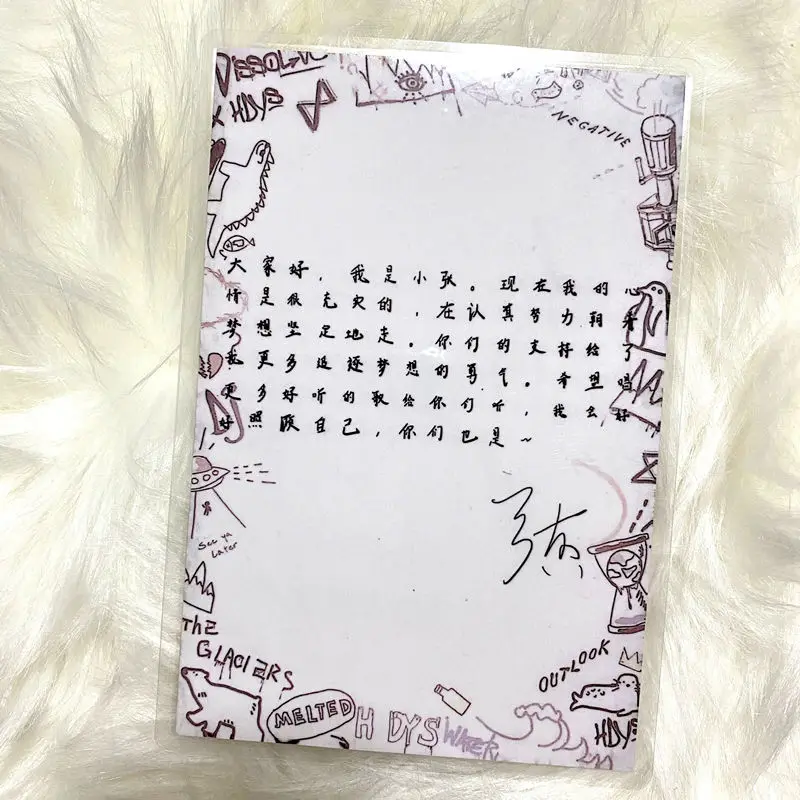 DISSOLVE
HDYS
NEGATIVE
大家好，我是小张。现在我的心
情是很充实的，在认真努力朝着
梦想坚定地走。你们的支持给了
我更多追逐梦想的勇气。希望唱
更多好听的歌给你们听，我会好
好照顾自己，你们也是~
See ya
Later
THE
GLACIERS
OUTLOOK
MELTED
HDYS
WATER
HDYS